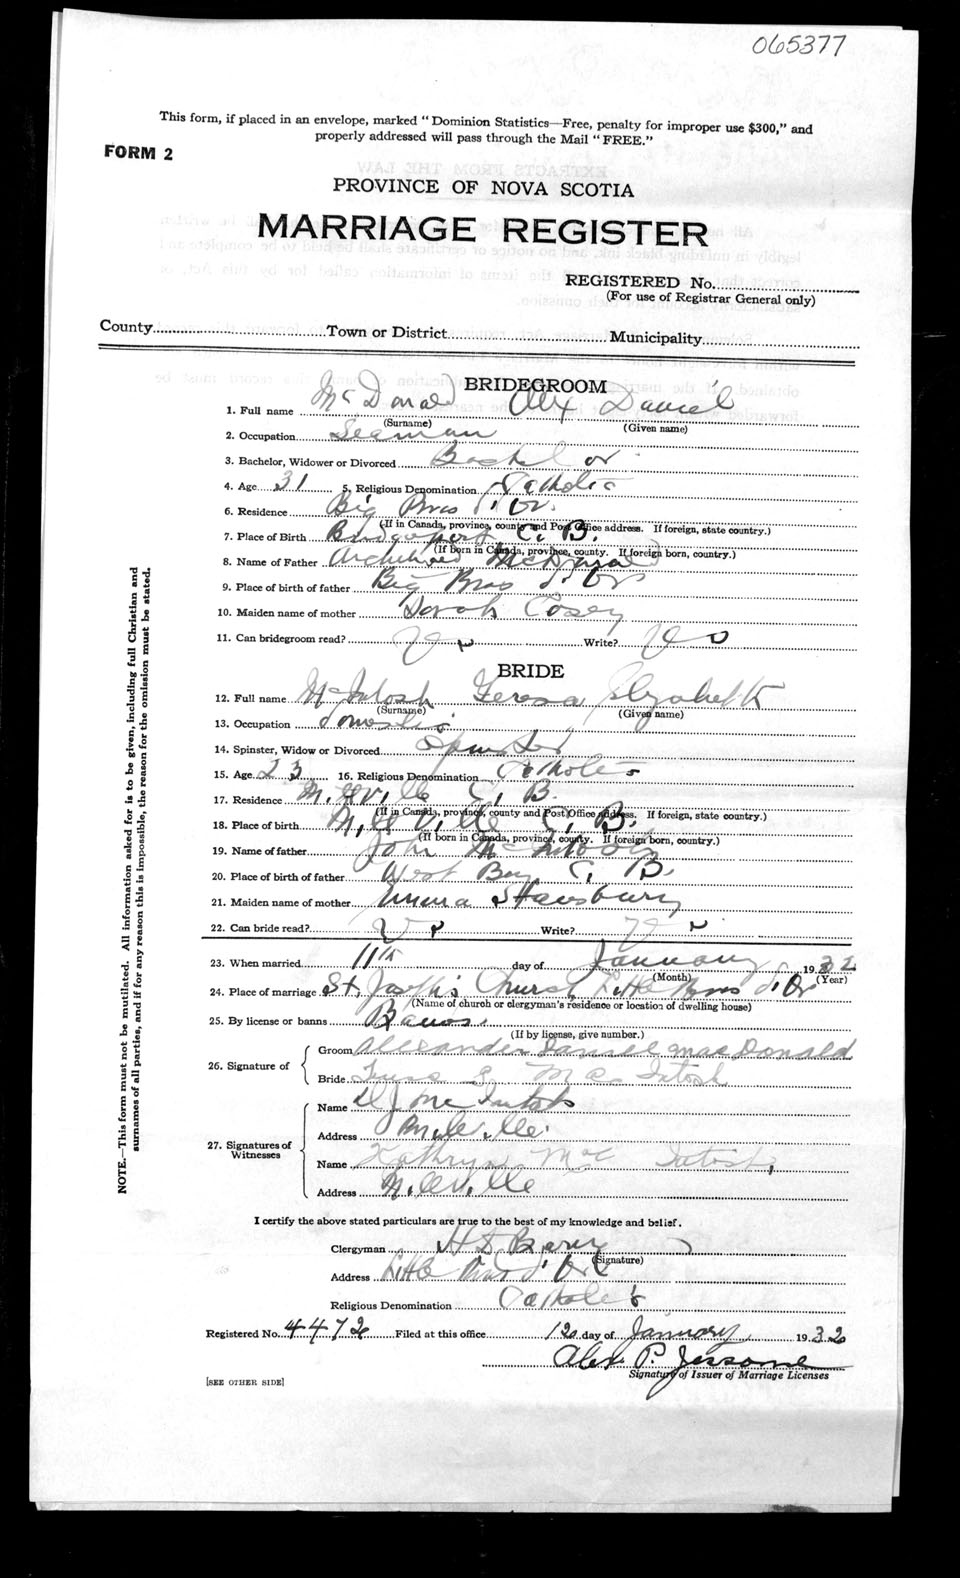 065377
This form, if placed in an envelope, marked " Dominion Statistics—Free, penalty for improper use $300," and
properly addressed will pass through the Mail " FREE."
FORM 2
PROVINCE OF NOVA SCOTIA
MARRIAGE REGISTER
REGISTERED No.
(For use of Registrar General only)
County Town or District Municipality
BRIDEGROOM
1. Full name McDonald Alex Daniel
(Surname) (Given name)
2. Occupation Seaman
3. Bachelor, Widower or Divorced Bachelor
4. Age 31 5. Religious Denomination Catholic
6. Residence Big Bras d'Or
(If in Canada, province, county and Post Office address. If foreign, state country.)
7. Place of Birth Bridgeport C. B.
(If born in Canada, province, county. If foreign born, country.)
8. Name of Father Archibald McDonald
9. Place of birth of father Big Bras d'Or
10. Maiden name of mother Sarah Casey
11. Can bridegroom read? Yes Write? Yes
BRIDE
12. Full name McIntosh Teresa Elizabeth
(Surname) (Given name)
13. Occupation domestic
14. Spinster, Widow or Divorced Spinster
15. Age 23 16. Religious Denomination Catholic
17. Residence Millville C. B.
(If in Canada, province, county and Post Office address. If foreign, state country.)
18. Place of birth Millville C. B.
(If born in Canada, province, county. If foreign born, country.)
19. Name of father John McIntosh
20. Place of birth of father West Bay C. B.
21. Maiden name of mother Emma Stansbury
22. Can bride read? Yes Write? Yes
23. When married 11th day of January 1932
(Month) (Year)
24. Place of marriage St. Joseph's Church Little Bras d'Or
(Name of church or clergyman's residence or location of dwelling house)
25. By license or banns Banns
(If by license, give number.)
26. Signature of
Groom Alexander Daniel MacDonald
Bride Teresa E MacIntosh
27. Signatures of Witnesses
Name D J McIntosh
Address Millville
Name Kathryn MacIntosh
Address Millville
I certify the above stated particulars are true to the best of my knowledge and belief.
Clergyman H D Barry
(Signature)
Address Little Bras d'Or
Religious Denomination Catholic
Registered No. 4472 Filed at this office 12 day of January 1932
Alex P. Jessome
Signature of Issuer of Marriage Licenses
[SEE OTHER SIDE]
NOTE.—This form must not be mutilated. All information asked for is to be given, including full Christian and
surnames of all parties, and if for any reason this is impossible, the reason for the omission must be stated.